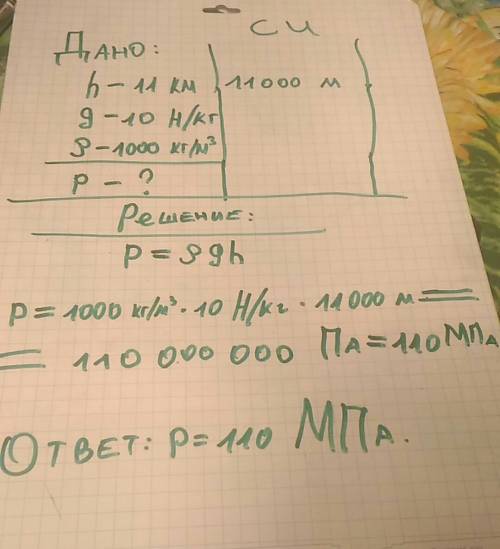 СИ
Дано:
h – 11 км | 11000 м
g – 10 Н/кг
ρ – 1000 кг/м³
P – ?
Решение:
P = ρgh
P = 1000 кг/м³ · 10 Н/кг · 11000 м =
= 110 000 000 Па = 110 МПа
Ответ: P = 110 МПа.